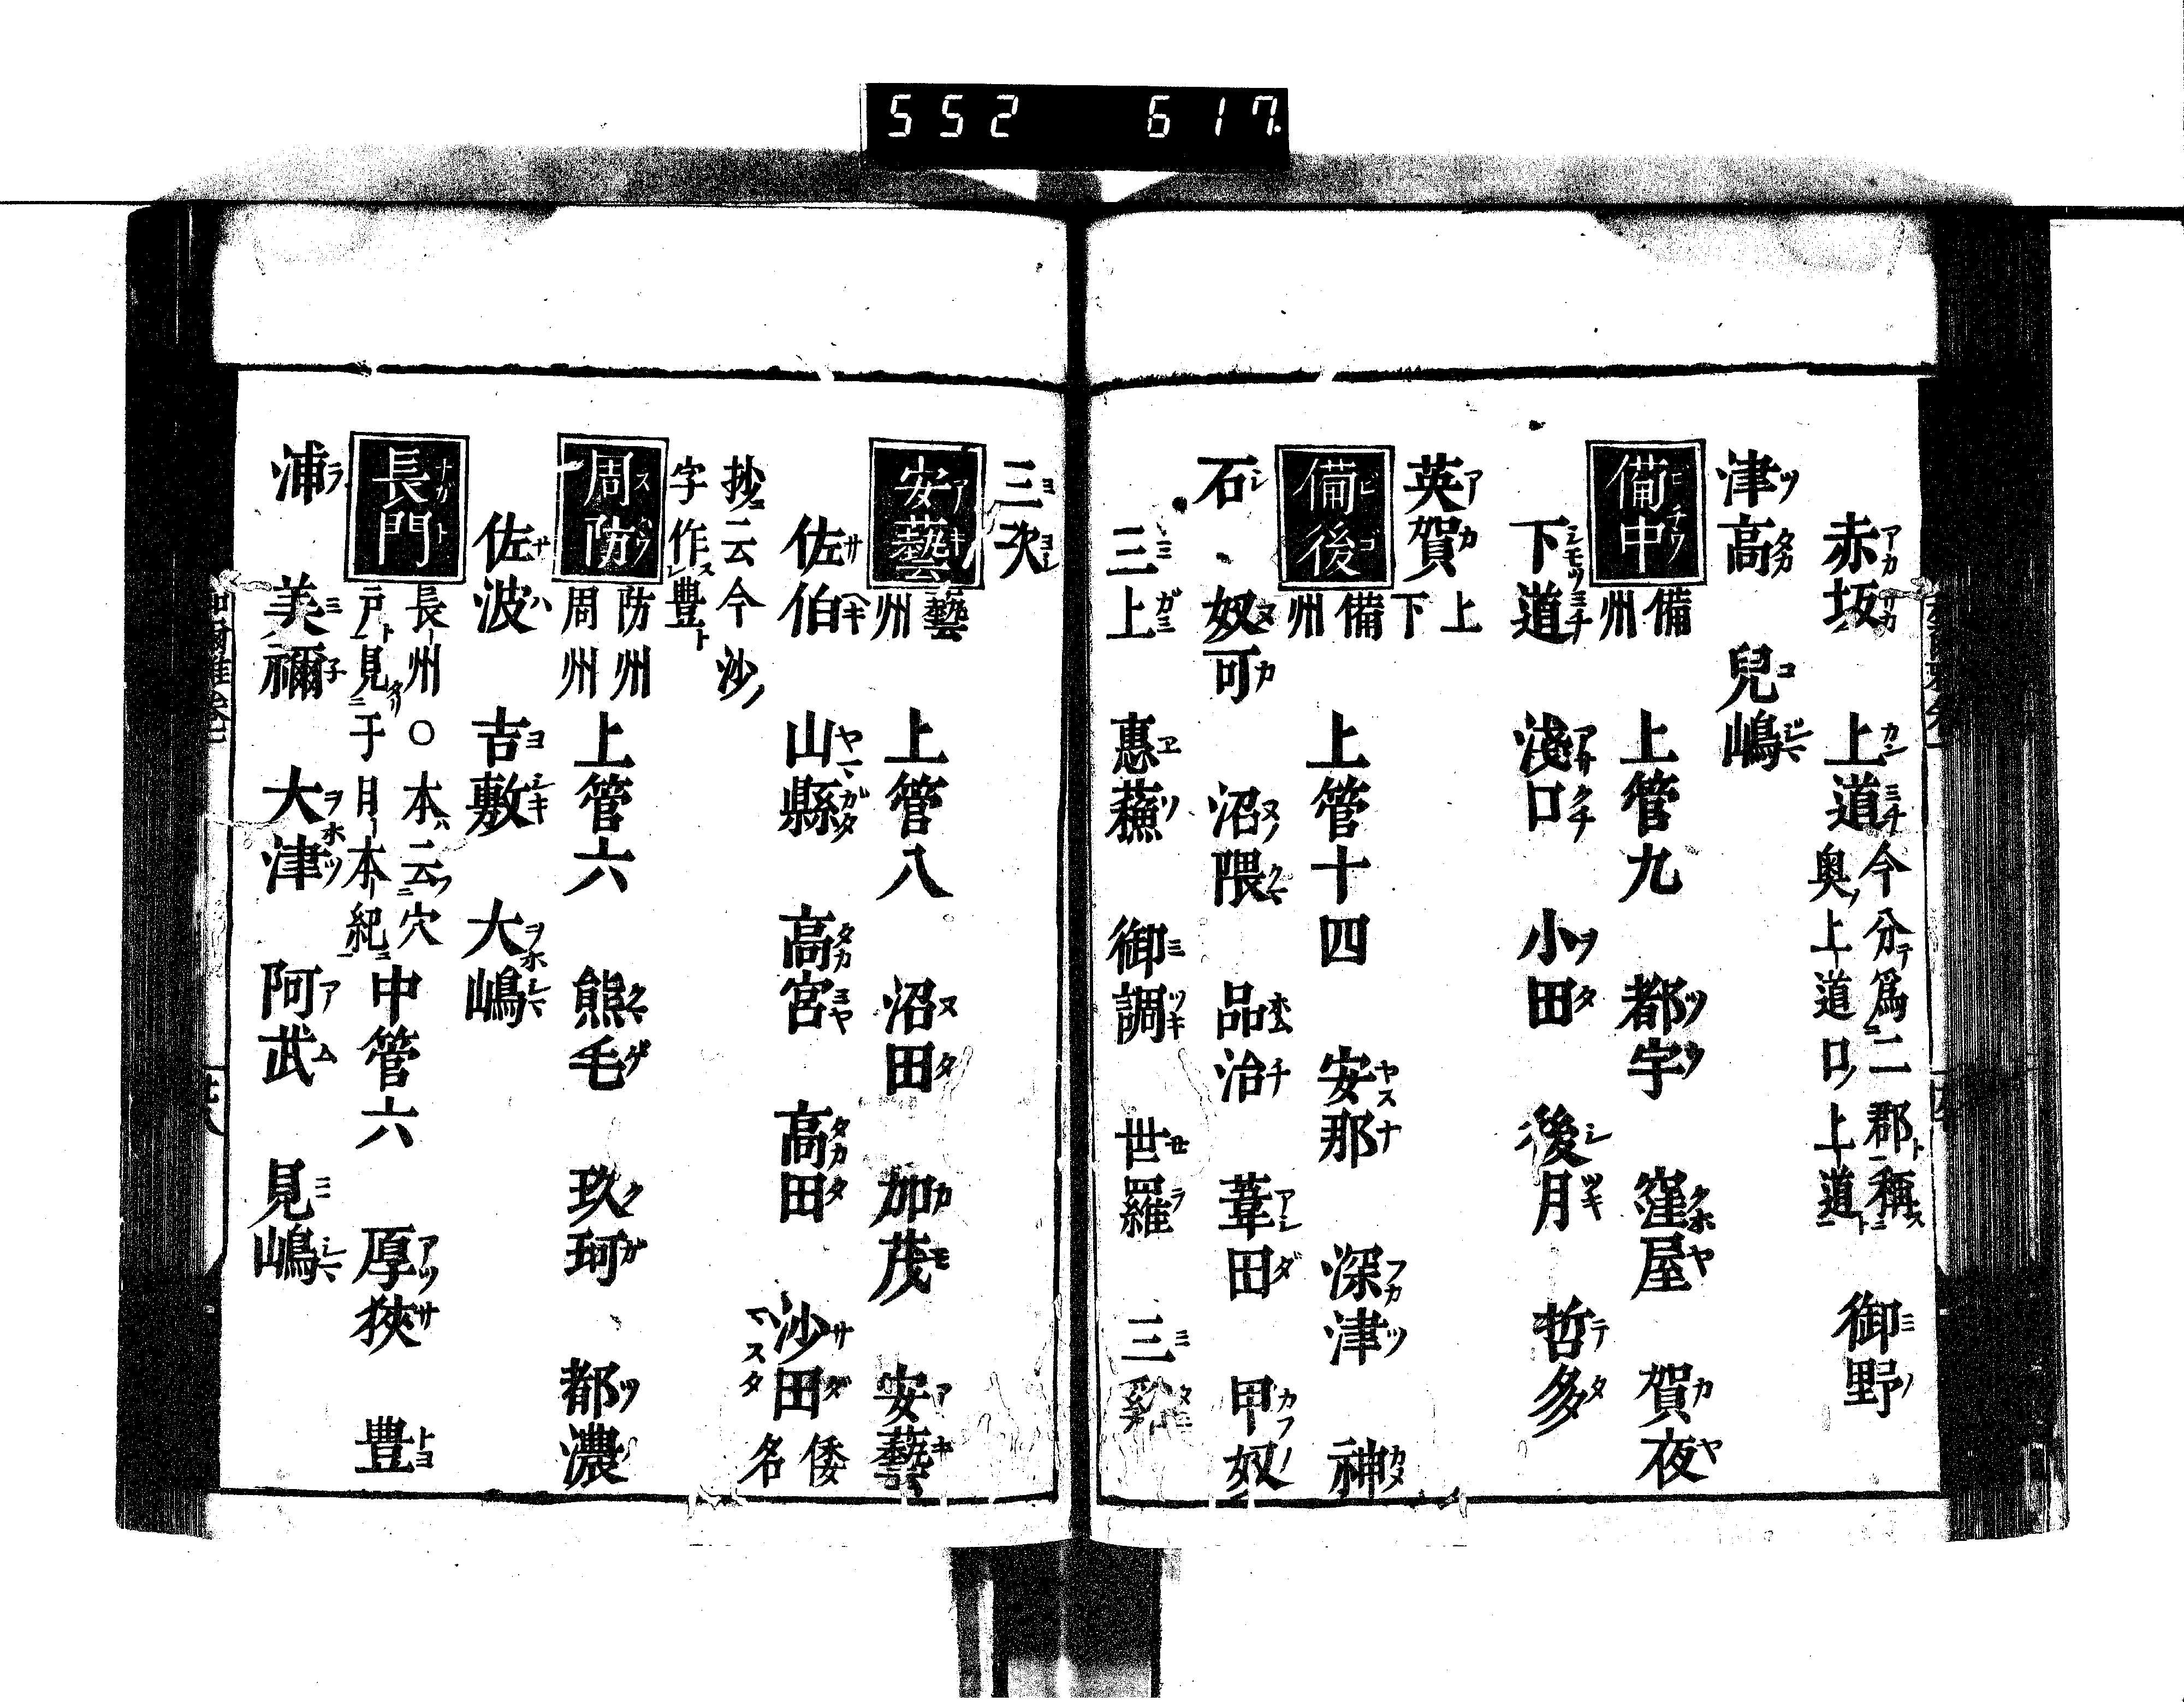 552 617.
赤坂 上道 今分爲二郡稱
奥上道口上道 御野
津高 兒嶋
備中 備
州 上管九 都宇 窪屋 賀夜
下道 淺口 小田 後月 哲多
英賀 上
下
備後 備
州 上管十四 安那 深津 神
石 奴可 沼隈 品治 葦田 甲奴
三上 惠蘓 御調 世羅 三谿
三次
安藝 藝
州 上管八 沼田 加茂 安藝
佐伯 山縣 高宮 高田 沙田 倭
名
抄云今沙
字作豐
周防 防州
周州 上管六 熊毛 玖珂 都濃
佐波 吉敷 大嶋
長門 長州○本云穴
戸見于日本紀 中管六 厚狹 豊
浦 美禰 大津 阿武 見嶋